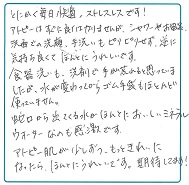 とにかく毎日快適、ストレスレスです！
アトピーはすぐ良くはなりませんが、シャワーやお風呂、
洗面での洗顔、手洗いもピリピリせず、逆に
気持ち良くて ほんとにうれしいです。
食器洗いも、洗剤で手が荒れると思っていま
したが、水が変わってからゴム手袋もほとんど
使ってません。
蛇口から出てくる水がほんとにおいしいミネラル
ウォーターなんも感激です。
アトピー肌が少しずつ、もっときれいに
なったら、ほんとにうれしいです。期待してます！